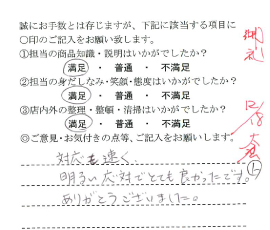 誠にお手数とは存じますが、下記に該当する項目に
○印のご記入をお願い致します。
①担当の商品知識・説明はいかがでしたか？
満足 ・ 普通 ・ 不満足
②担当の身だしなみ・笑顔・態度はいかがでしたか？
満足 ・ 普通 ・ 不満足
③店内外の整理・整頓・清掃はいかがでしたか？
満足 ・ 普通 ・ 不満足
◎ご意見・お気付きの点等、ご記入をお願いします。
対応も速く、
明るい応対でとても良かったです。
ありがとうございました。
12/8